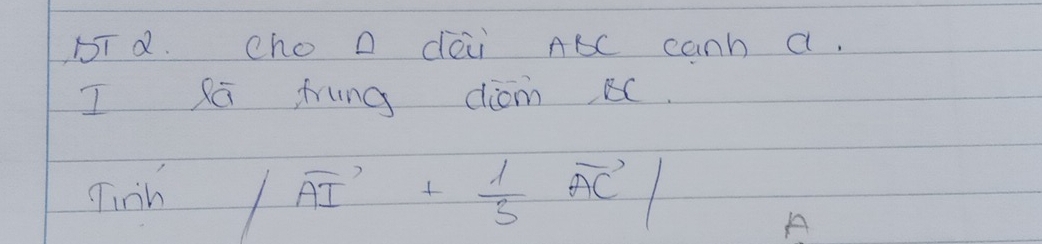 BT 2. Cho Δ đều ABC cạnh a.
I là trung điểm BC.
Tính | \overrightarrow{AI} + \frac{1}{3} \overrightarrow{AC} |
A